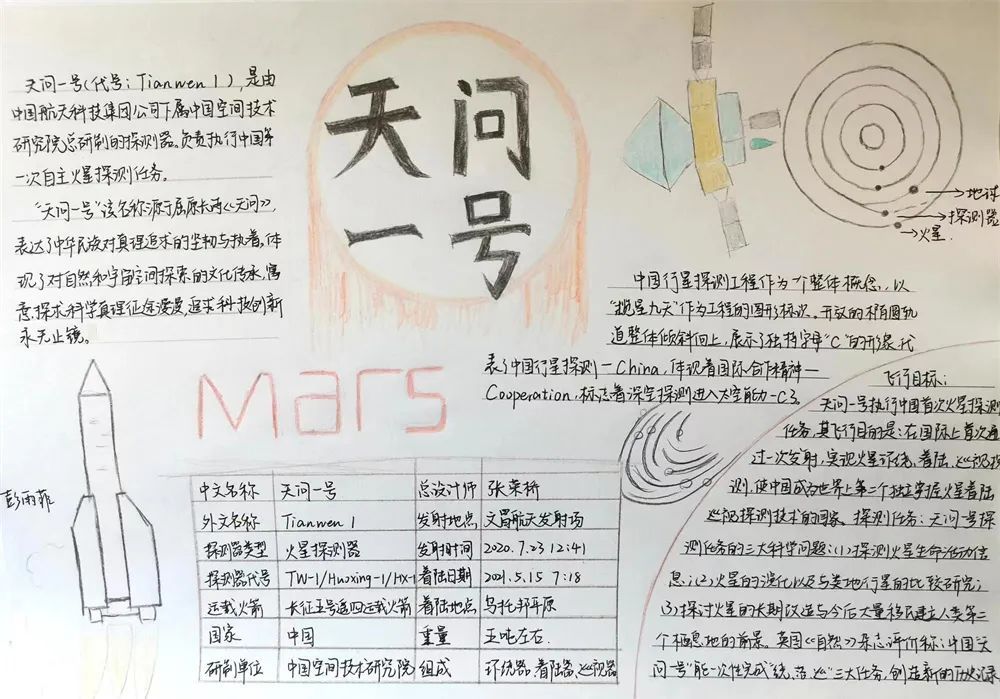 天问
一号
天问一号(代号:Tianwen 1),是由
中国航天科技集团公司下属中国空间技术
研究院总研制的探测器。负责执行中国第
一次自主火星探测任务。
"天问一号"该名称源于屈原长诗《天问》,
表达了中华民族对真理追求的坚韧与执着,体
现了对自然和宇宙空间探索的文化传承,寓
意探求科学真理征途漫漫,追求科技创新
永无止境。
地球
探测器
火星.
中国行星探测工程作为一个整体概念,以
"揽星九天"作为工程的图形标识。开放的椭圆轨
道整体倾斜向上,展示了独特字母"C"的形象,代
表了中国行星探测—China,体现着国际合作精神—
Cooperation,标志着深空探测进入太空能力-C3.
Mars
彭雨菲
中文名称 天问一号 总设计师 张荣桥
外文名称 Tianwen 1 发射地点 文昌航天发射场
探测器类型 火星探测器 发射时间 2020.7.23 12:41
探测器代号 TW-1/Huoxing-1/HX-1 着陆日期 2021.5.15 7:18
运载火箭 长征五号遥四运载火箭 着陆地点 乌托邦平原
国家 中国 重量 五吨左右.
研制单位 中国空间技术研究院 组成 环绕器、着陆器、巡视器
飞行目标:
天问一号执行中国首次火星探测
任务,其飞行目的是:在国际上首次通
过一次发射,实现火星环绕、着陆、巡视探
测,使中国成为世界上第二个独立掌握火星着陆
巡视探测技术的国家。探测任务:天问一号探
测任务的三大科学问题:(1)探测火星生命活动信
息;(2)火星的演化以及与类地行星的比较研究;
(3)探讨火星的长期改造与今后大量移民建立人类第二
个栖息地的前景。英国《自然》杂志评价称:中国"天
问一号"能一次性完成"绕、落、巡"三大任务,创造新的历史记录